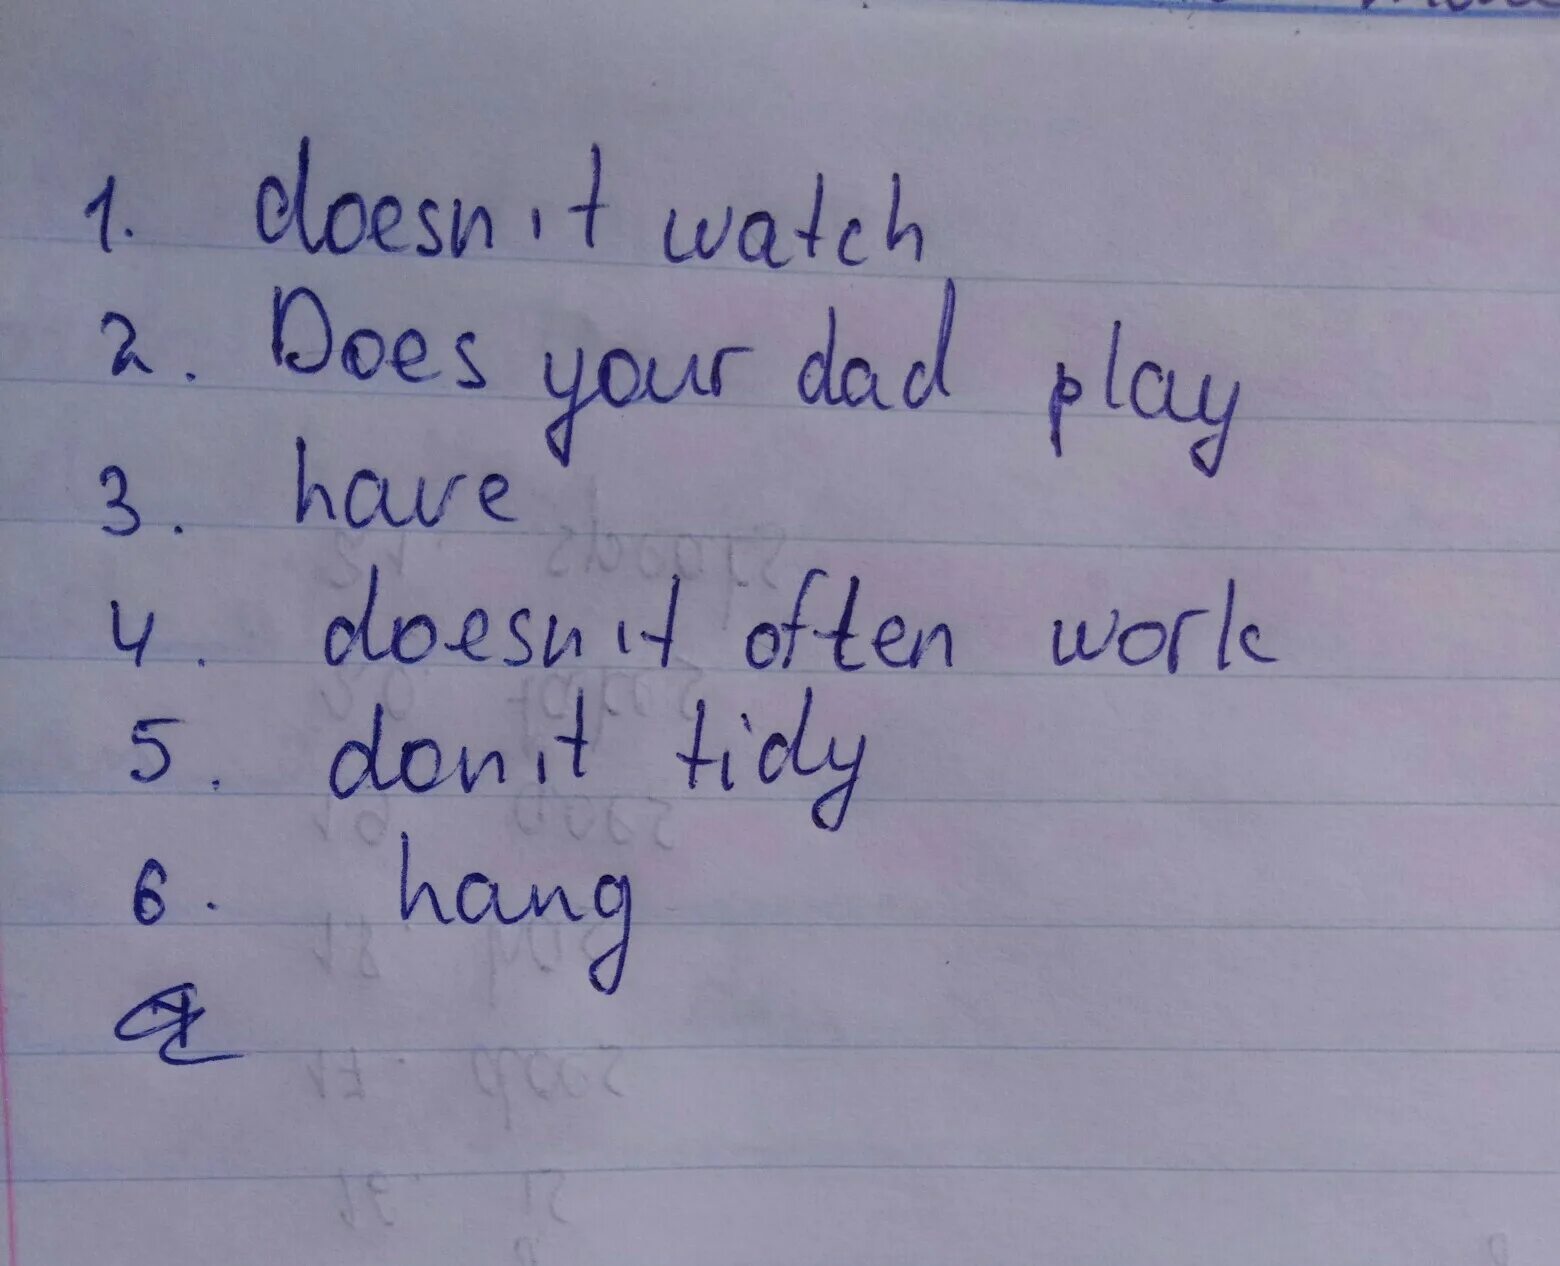 1. doesn't watch
2. Does your dad play
3. have
4. doesn't often work
5. don't tidy
6. hang